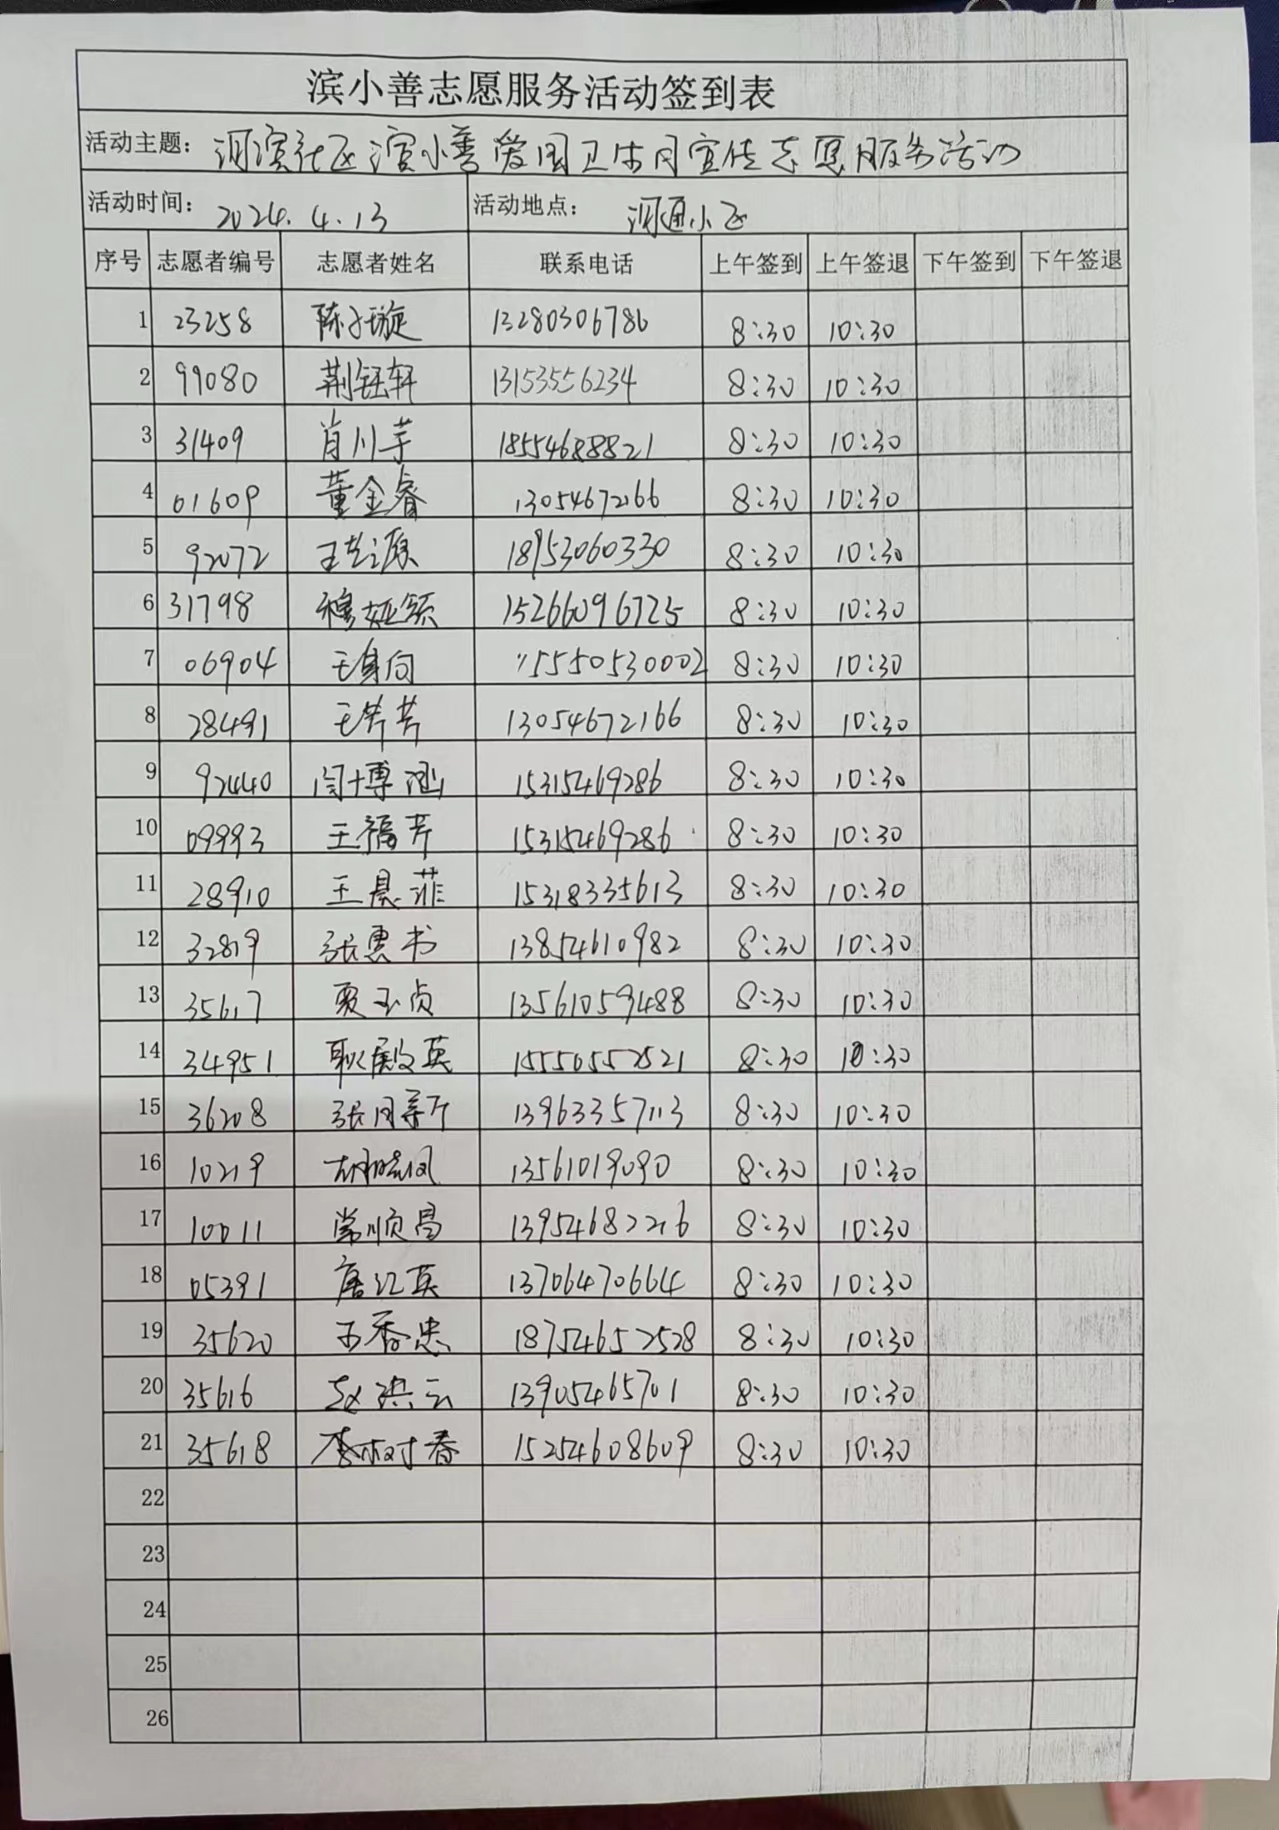 滨小善志愿服务活动签到表
活动主题： 河滨社区滨小善爱国卫生月宣传志愿服务活动
活动时间： 2024.4.13 活动地点： 河通小区
序号 志愿者编号 志愿者姓名 联系电话 上午签到 上午签退 下午签到 下午签退
1 23258 陈子璇 13280306786 8:30 10:30
2 99080 荆钰轩 13153556234 8:30 10:30
3 31409 肖川芋 18554688821 8:30 10:30
4 01609 董金睿 13054672166 8:30 10:30
5 92072 18953060330 8:30 10:30
6 31798 15266096725 8:30 10:30
7 06904 15550530002 8:30 10:30
8 28491 13054672166 8:30 10:30
9 92440 闫博涵 15315469286 8:30 10:30
10 09993 王福芹 15315469286 8:30 10:30
11 28910 王晨菲 15318335613 8:30 10:30
12 32819 张惠书 13854610982 8:30 10:30
13 35617 夏玉贞 13561059488 8:30 10:30
14 34951 耿殿英 15550552521 8:30 10:30
15 36208 张月新 13963357113 8:30 10:30
16 10219 胡晓凤 13561019090 8:30 10:30
17 10011 常顺昌 13954682216 8:30 10:30
18 05391 唐江英 13706470664 8:30 10:30
19 35620 18754652528 8:30 10:30
20 35616 赵洪云 13905465701 8:30 10:30
21 35618 李树春 15254608609 8:30 10:30
22
23
24
25
26